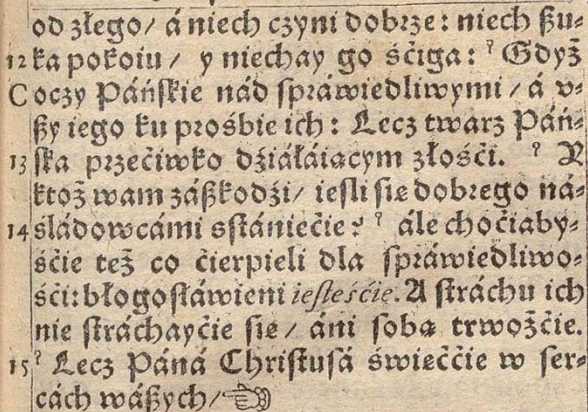 od złego/ á niech czyni dobrze: niech ßu-
12 ka pokoiu / y niechay go śćiga: ? Gdyż
C oczy Páńſkie nád ſpráwiedliwymi / á v-
ßy iego ku prośbie ich: Lecz twarz Páń-
13 ſka przećiwko dźiáłáiącym złośći. ? Y
ktoż wam záßkodźi/ ieſli ſię dobrego ná-
14 śládowcámi sſtániećie? ? ále choćiaby-
śćie też co ćierpieli dla ſpráwiedliwo-
śći: błogoſłáwieni ieſteśćie. A ſtráchu ich
nie ſtráchayćie ſię / áni ſobą trwożćie.
15 ? Lecz Páná Chriſtuſá święććie w ſer-
cách wáßych/ ☜